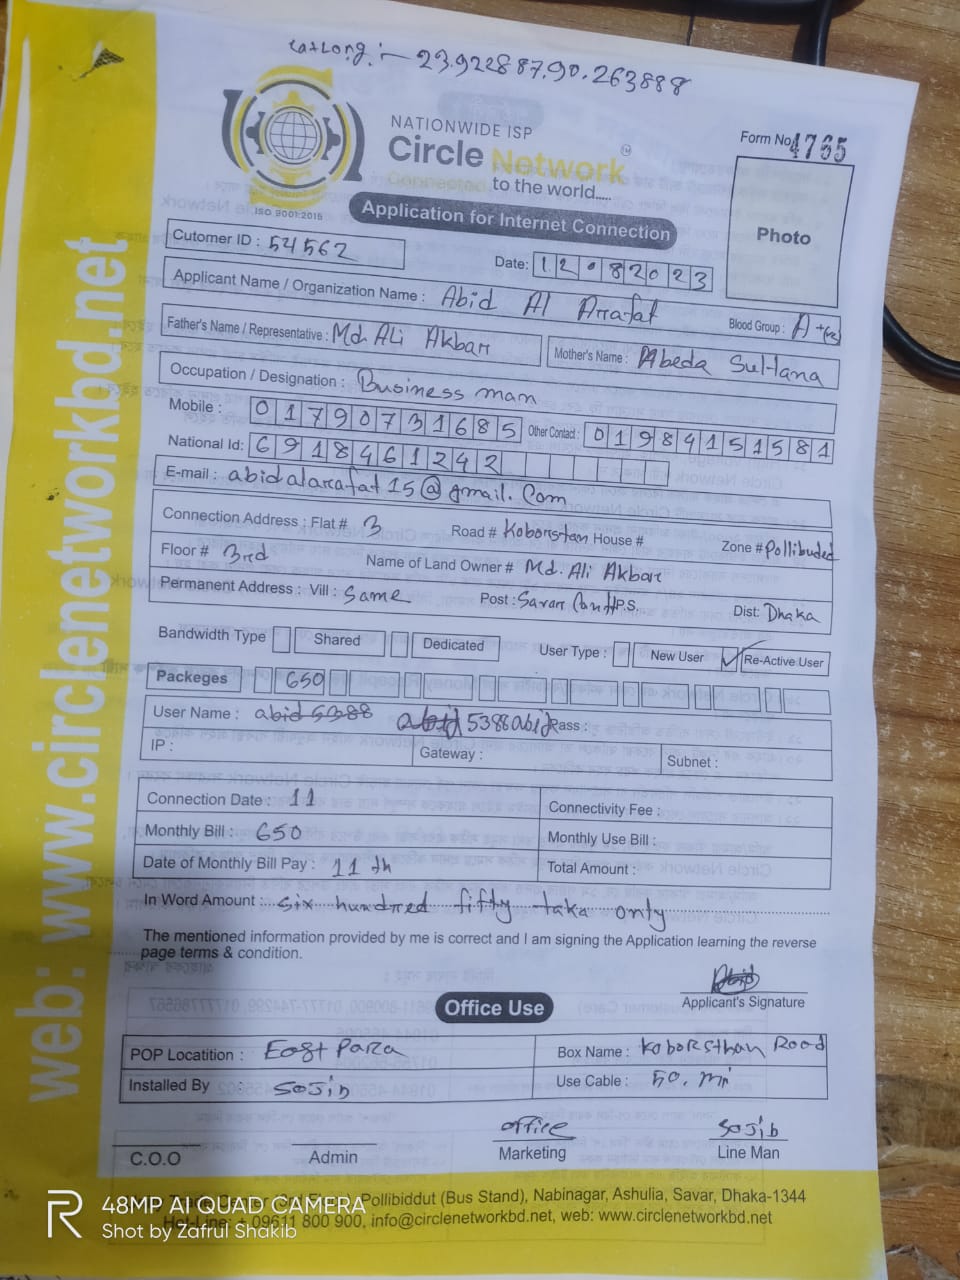 Lat Long :- 23.922887,90.263888
NATIONWIDE ISP
Circle Network
Connected to the world.....
ISO 9001:2015
Form No 4765
Photo
Application for Internet Connection
Cutomer ID : 54562
Date: 12.082023
Applicant Name / Organization Name : Abid Al Arrafat
Blood Group : A+(ve)
Father's Name / Representative : Md. Ali Akbar
Mother's Name : Abeda Sultana
Occupation / Designation : Business man
Mobile : 01790731685 Other Contact : 01984151581
National Id: 6918461242
E-mail : abidalarafat15@gmail.com
Connection Address : Flat # 3 Road # Koborsthan House # Zone # Pollibuded
Floor # 3rd Name of Land Owner # Md. Ali Akbar
Permanent Address : Vill : Same Post : Savar Cantt P.S. Dist: Dhaka
Bandwidth Type Shared Dedicated User Type : New User Re-Active User
Packeges 650
User Name : abid5388 abid 5388abid Pass :
IP : Gateway : Subnet :
Connection Date : 11 Connectivity Fee :
Monthly Bill : 650 Monthly Use Bill :
Date of Monthly Bill Pay : 11 th Total Amount :
In Word Amount : six hundred fifty taka only
The mentioned information provided by me is correct and I am signing the Application learning the reverse
page terms & condition.
Abid
Applicant's Signature
Office Use
POP Locatition : East Para Box Name : Koborsthan Road
Installed By : Sojib Use Cable : 50. mi
office Sojib
C.O.O Admin Marketing Line Man
Pollibiddut (Bus Stand), Nabinagar, Ashulia, Savar, Dhaka-1344
Hot-Line: + 09611 800 900, info@circlenetworkbd.net, web: www.circlenetworkbd.net
web: www.circlenetworkbd.net
48MP AI QUAD CAMERA
Shot by Zafrul Shakib